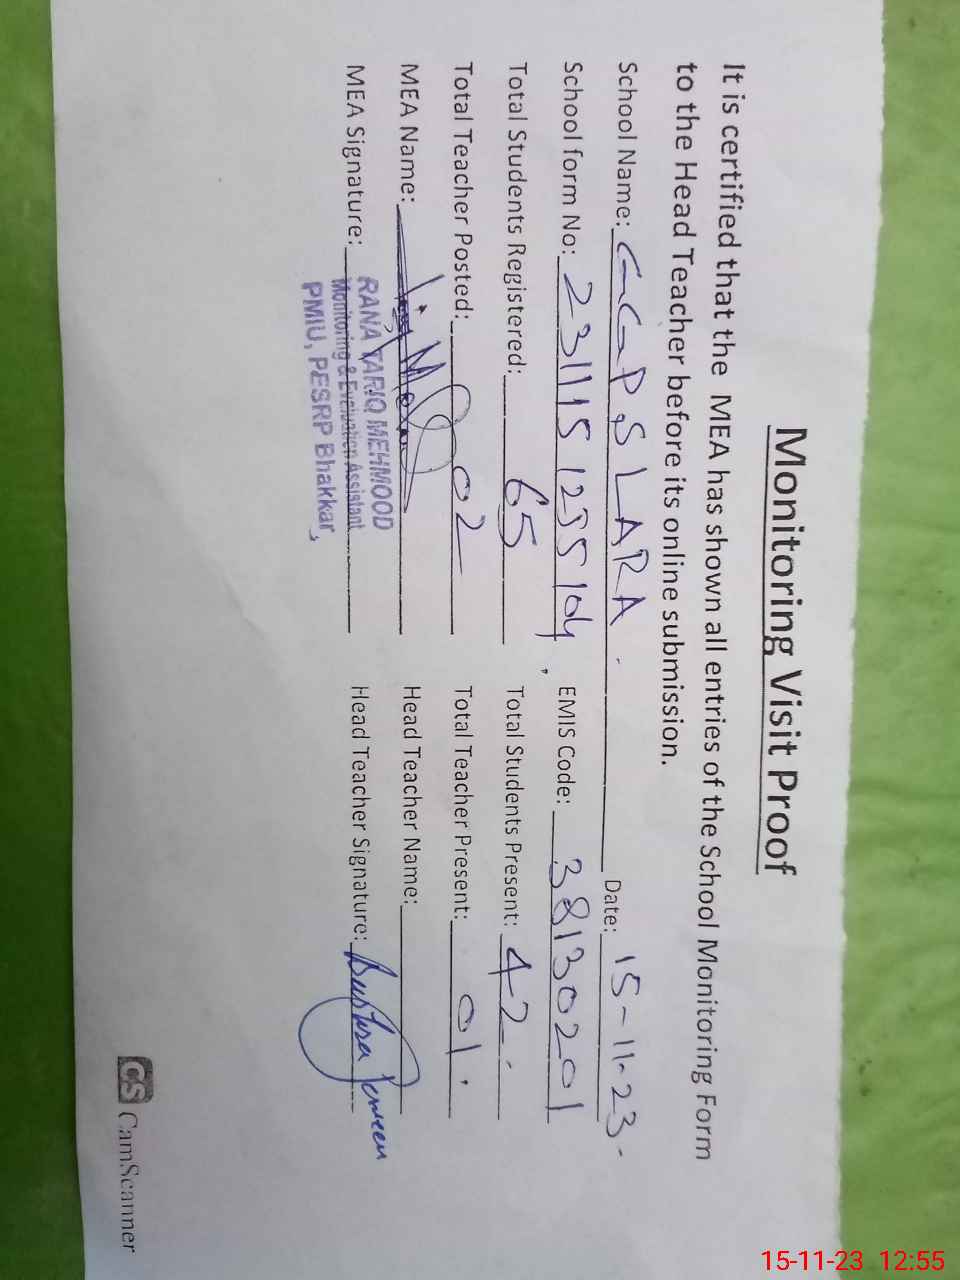 Monitoring Visit Proof
It is certified that the MEA has shown all entries of the School Monitoring Form
to the Head Teacher before its online submission.
School Name: GGPS LARA Date: 15-11-23
School form No: 2311151255104 EMIS Code: 38130201
Total Students Registered: 65 Total Students Present: 42
Total Teacher Posted: 02 Total Teacher Present: 01
MEA Name: Head Teacher Name:
MEA Signature: Head Teacher Signature: Bushra
RANA TARIQ MEHMOOD
Monitoring & Evaluation Assistant
PMIU, PESRP Bhakkar,
CS CamScanner
15-11-23 12:55